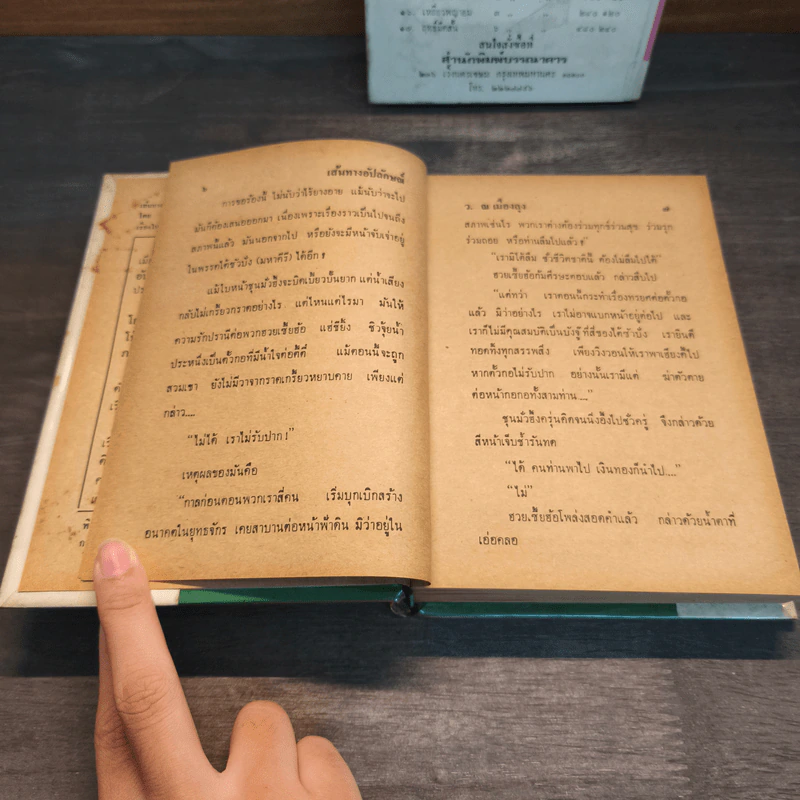 ๒๔๑ ๒๔๐
สนใจสั่งซื้อที่
สำนักพิมพ์บรรณาคาร
โทร
๖
เส้นทางอัปลักษณ์
การขอร้องนี้ ไม่นับว่าไร้ยางอาย แม้นับว่าจะไป
มันก็ต้องเสนอออกมา เนื่องเพราะเรื่องราวเป็นไปจนถึง
สภาพนี้แล้ว มันนอกจากไป หรือยังจะมีหน้าจับเจ่าอยู่
ในพรรคไต้ซัวปัง (มหาคีรี) ได้อีก !
แม้ใบหน้าซุนมั่วอึ้งจะบิดเบี้ยวบั้นยาก แต่น้ำเสียง
กลับไม่เกรี้ยวกราดอย่างไร แต่ไหนแต่ไรมา มันให้
ความรักปรานีต่อพวกฮวยเซี้ยฮ้อ แฮ่ซียิ้ง ซิวจุ้ยน้ำ
ประหนึ่งเป็นตั้วกอที่มีน้ำใจต่อตี๋ตี๋ แม้ตอนนี้จะถูก
สวมเขา ยังไม่มีวาจากราดเกรี้ยวหยาบคาย เพียงแต่
กล่าว....
“ไม่ได้ เราไม่รับปาก !”
เหตุผลของมันคือ
“กาลก่อนตอนพวกเราสี่คน เริ่มบุกเบิกสร้าง
อนาคตในยุทธจักร เคยสาบานต่อหน้าฟ้าดิน มิว่าอยู่ใน
ว. ณ เมืองลุง
๗
สภาพเช่นไร พวกเราต่างต้องร่วมทุกข์ร่วมสุข ร่วมรุก
ร่วมถอย หรือท่านลืมไปแล้ว !”
“เรามิได้ลืม ชั่วชีวิตชาตินี้ ต้องไม่ลืมไปได้”
ฮวยเซี้ยฮ้อก้มศีรษะตอบแล้ว กล่าวสืบไป
“แต่ทว่า เราตอนนี้กระทำเรื่องทรยศต่อตั้วกอ
แล้ว มิว่าอย่างไร เราไม่อาจแบกหน้าอยู่ต่อไป และ
เราก็ไม่มีคุณสมบัติเป็นปังจู๊ที่สี่ของไต้ซัวปัง เรายินดี
ทอดทิ้งทุกสรรพสิ่ง เพียงวิงวอนให้เราพาเฮียงตี๋ไป
หากตั้วกอไม่รับปาก อย่างนั้นเรามีแต่ ฆ่าตัวตาย
ต่อหน้ากอกอทั้งสามท่าน....”
ซุนมั่วอึ้งครุ่นคิดจนนิ่งอึ้งไปชั่วครู่ จึงกล่าวด้วย
สีหน้าเจ็บช้ำรันทด
“ได้ คนท่านพาไป เงินทองก็นำไป....”
“ไม่”
ฮวยเซี้ยฮ้อโพล่งสอดคำแล้ว กล่าวด้วยน้ำตาที่
เอ่อคลอ